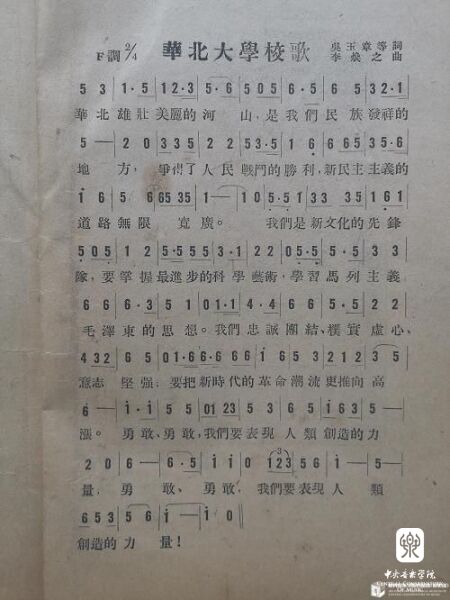 F調 2/4 華北大學校歌 吳玉章等詞
李煥之曲
5 3 | 1·5 | 12·3 | 5·6 | 505 | 6·5 | 6 5 | 32·1 |
華北雄壯美麗的河山,是我們民族發祥的
5 — | 2 0 | 335 | 2 2 | 53·5 | 1 6 | 665 | 35·6 |
地方,爭得了人民戰鬥的勝利,新民主主義的
1 6 | 5 6 | 65 35 | 1 — | 10 | 5·51 | 3·5 | 161 |
道路無限寬廣。我們是新文化的先鋒
505 | 1 2 | 5·5 55 | 3·1 | 2 2 | 0 5 | 5·5 | 3 3 |
隊,要掌握最進步的科學藝術,學習馬列主義
6 6 | 6·3 | 5 1 | 01·1 | 4·4 | 6 6 | 5·5 | 2 2 |
毛澤東的思想。我們忠誠團結、樸實虛心、
4 32 | 6 5 | 01·6 | 6·6 66 | 1 65 | 35 | 2 12 | 3 5 |
意志堅强;要把新時代的革命潮流更推向高
6 — | 1·1 | 5 5 | 01 23 | 5 3 | 6 5 | 1 65 | 3 1 |
漲。勇敢、勇敢,我們要表現人類創造的力
2 0 | 6 — | 6·5 | 1 1 0 | 123 | 5 6 | 1 — | 5 — |
量,勇敢、勇敢,我們要表現人類
6 53 | 5 6 | 1 — | 1 0 ‖
創造的力量!
中央音乐学院
CENTRAL CONSERVATORY
OF MUSIC